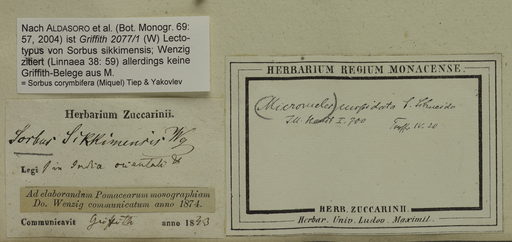 Nach ALDASORO et al. (Bot. Monogr. 69:
57, 2004) ist Griffith 2077/1 (W) Lecto-
typus von Sorbus sikkimensis; Wenzig
zitiert (Linnaea 38: 59) allerdings keine
Griffith-Belege aus M.
= Sorbus corymbifera (Miquel) Tiep & Yakovlev
Herbarium Zuccarinii.
Sorbus Sikkimensis Wg
Legi in India orientali
Ad elaborandum Pomacearum monographiam
Do. Wenzig communicatum anno 1874.
Communicavit Griffith anno 1843
HERBARIUM REGIUM MONACENSE.
(Micromeles) cuspidata C. Schneider
Ill. Handb. I. 700
HERB. ZUCCARINII.
Herbar. Univ. Ludov. Maximil.